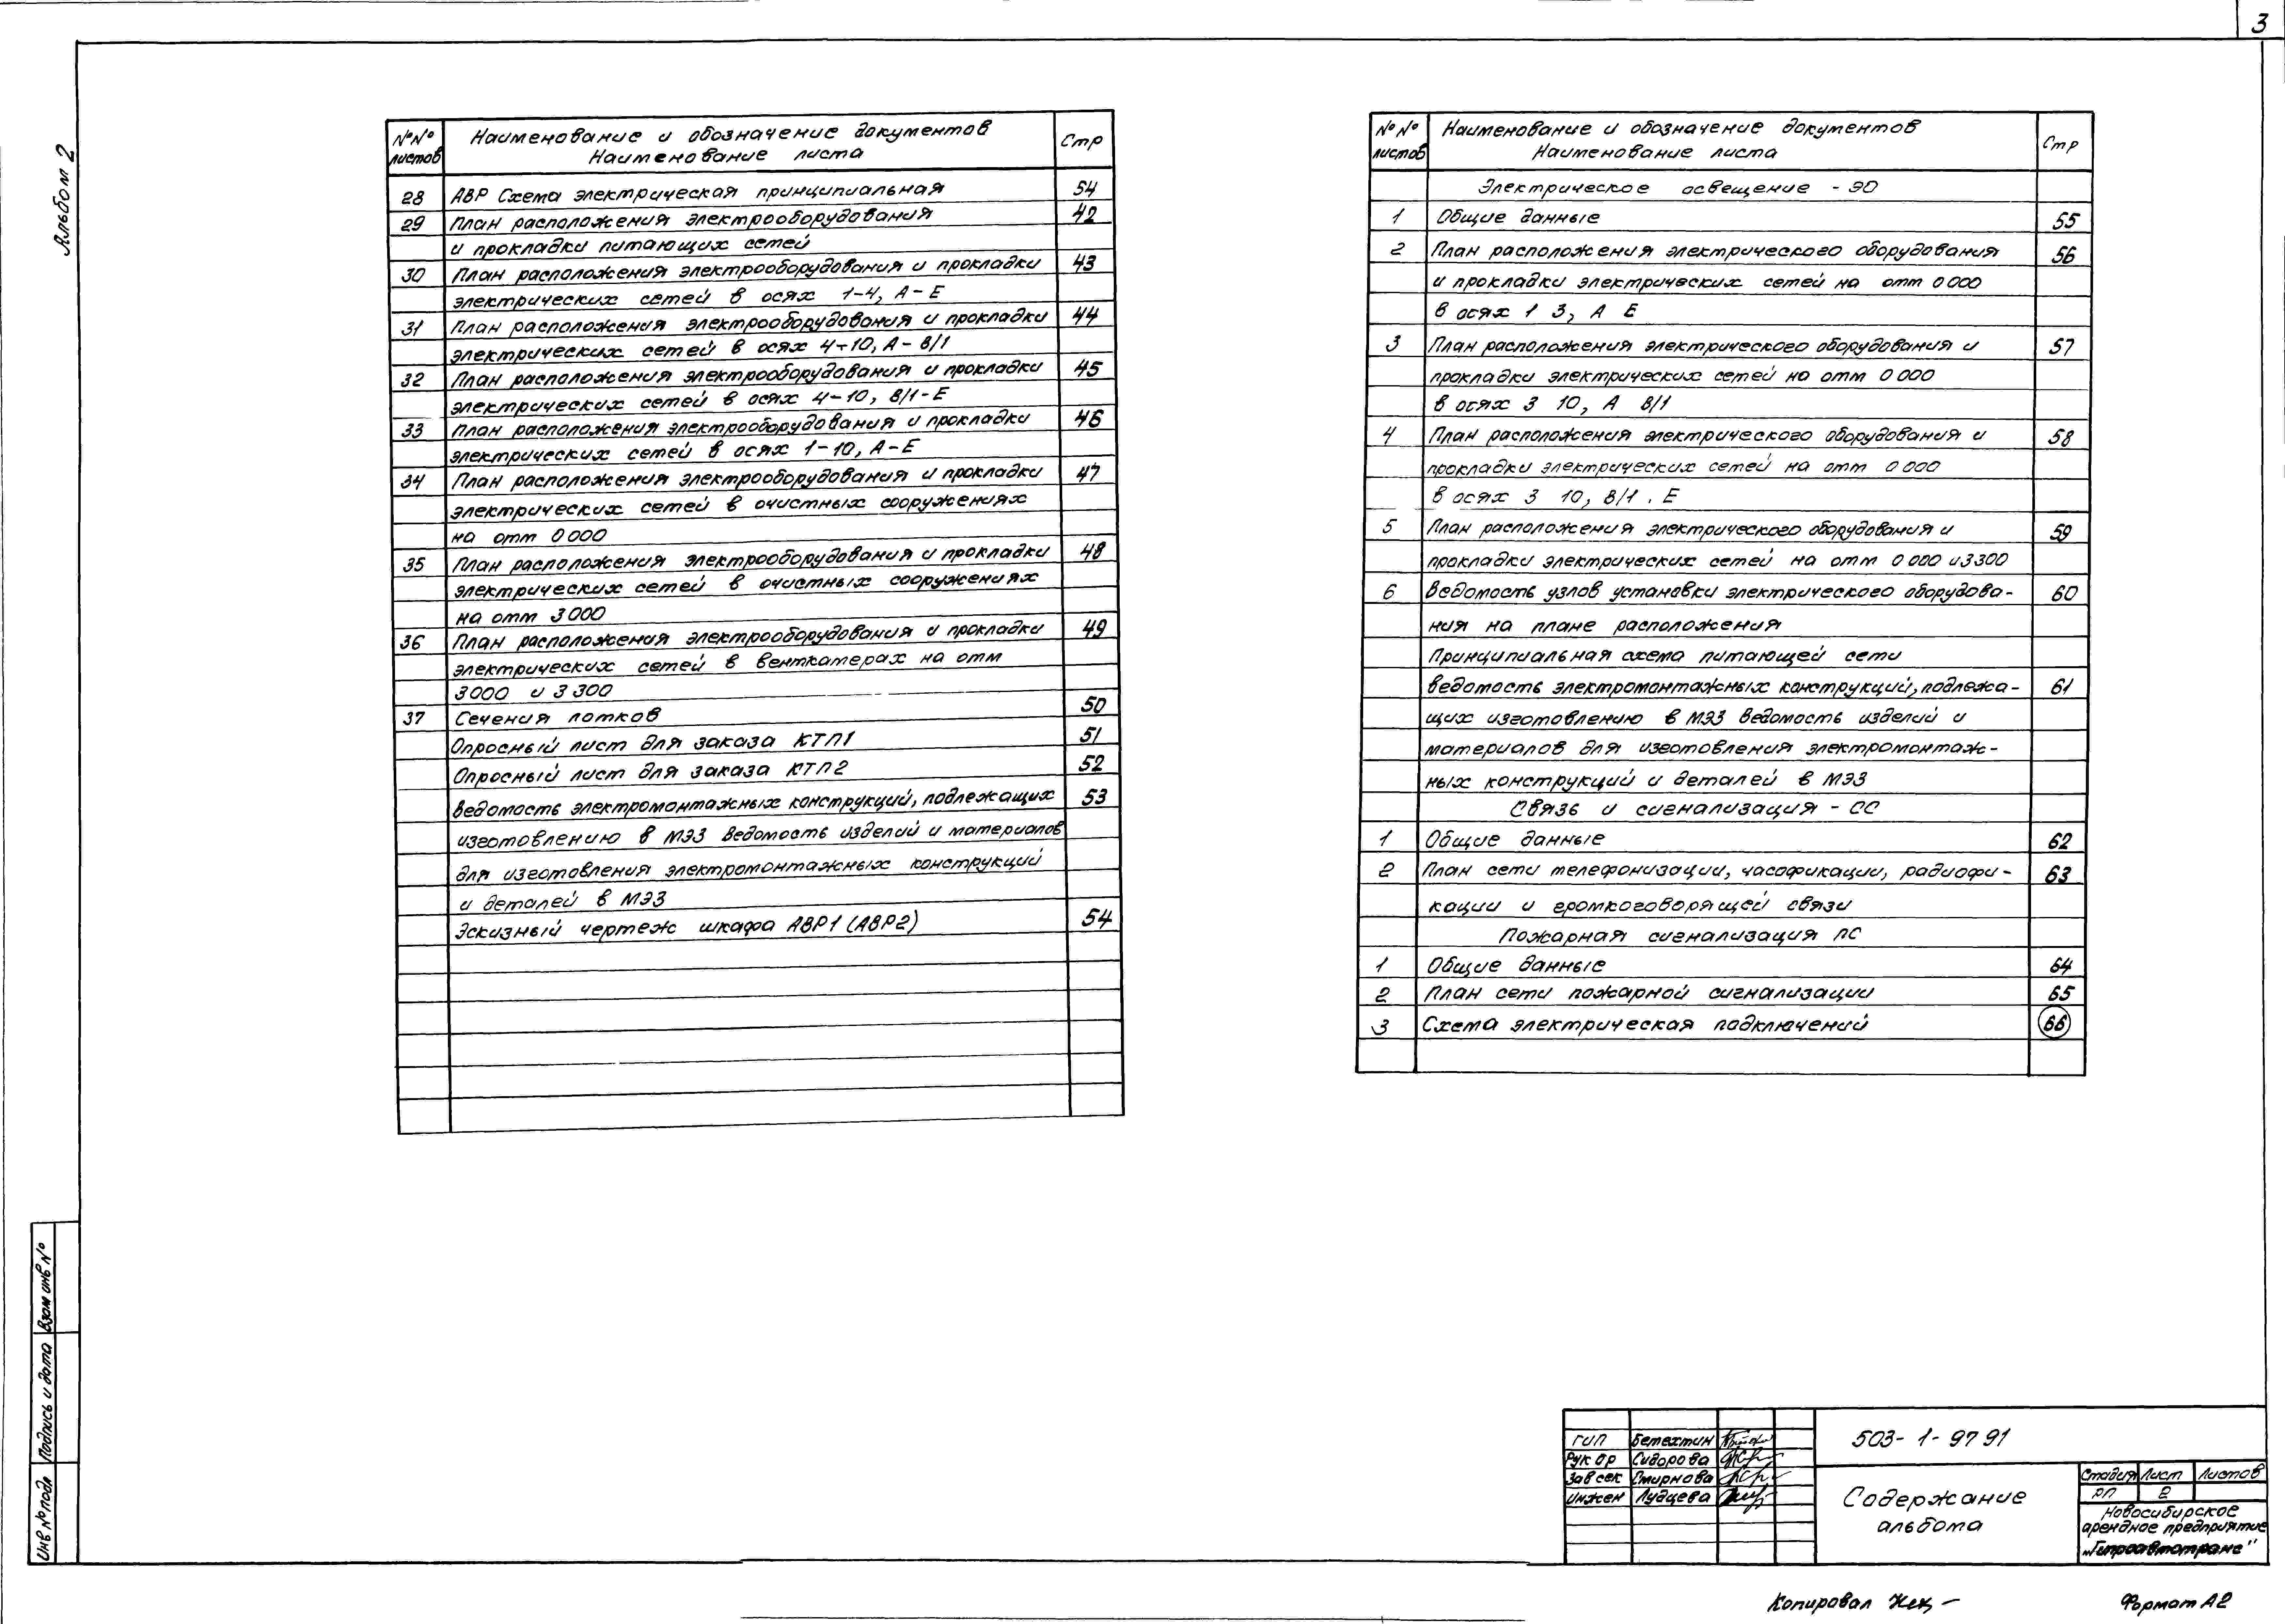 3
Альбом 2
№№ листов
Наименование и обозначение документов
Наименование листа
Стр
28 АВР Схема электрическая принципиальная 54
29 План расположения электрооборудования 42
и прокладки питающих сетей
30 План расположения электрооборудования и прокладки 43
электрических сетей в осях 1-4, А-Е
31 План расположения электрооборудования и прокладки 44
электрических сетей в осях 4-10, А-В/1
32 План расположения электрооборудования и прокладки 45
электрических сетей в осях 4-10, В/1-Е
33 План расположения электрооборудования и прокладки 46
электрических сетей в осях 1-10, А-Е
34 План расположения электрооборудования и прокладки 47
электрических сетей в очистных сооружениях
на отм 0 000
35 План расположения электрооборудования и прокладки 48
электрических сетей в очистных сооружениях
на отм 3 000
36 План расположения электрооборудования и прокладки 49
электрических сетей в венткамерах на отм
3 000 и 3 300
37 Сечения лотков 50
Опросный лист для заказа КТП1 51
Опросный лист для заказа КТП2 52
Ведомость электромонтажных конструкций, подлежащих 53
изготовлению в МЭЗ Ведомость изделий и материалов
для изготовления электромонтажных конструкций
и деталей в МЭЗ
Эскизный чертеж шкафа АВР1 (АВР2) 54
№№ листов
Наименование и обозначение документов
Наименование листа
Стр
Электрическое освещение - ЭО
1 Общие данные 55
2 План расположения электрического оборудования 56
и прокладки электрических сетей на отм 0 000
в осях 1 3, А Е
3 План расположения электрического оборудования и 57
прокладки электрических сетей на отм 0 000
в осях 3 10, А В/1
4 План расположения электрического оборудования и 58
прокладки электрических сетей на отм 0 000
в осях 3 10, В/1 . Е
5 План расположения электрического оборудования и 59
прокладки электрических сетей на отм 0 000 и 3 300
6 Ведомость узлов установки электрического оборудова- 60
ния на плане расположения
Принципиальная схема питающей сети
Ведомость электромонтажных конструкций, подлежа- 61
щих изготовлению в МЭЗ Ведомость изделий и
материалов для изготовления электромонтаж-
ных конструкций и деталей в МЭЗ
Связь и сигнализация - СС
1 Общие данные 62
2 План сети телефонизации, часофикации, радиофи- 63
кации и громкоговорящей связи
Пожарная сигнализация ПС
1 Общие данные 64
2 План сети пожарной сигнализации 65
3 Схема электрическая подключений 66
Инв № подл Подпись и дата Взам инв №
ГИП Бетехтин
Рук гр Сидорова
Зав сек Смирнова
Инжен Лудцева
503-1-97 91
Содержание
альбома
Стадия Лист Листов
РП 2
Новосибирское
арендное предприятие
„Гипроавтотранс"
Копировал
Формат А2